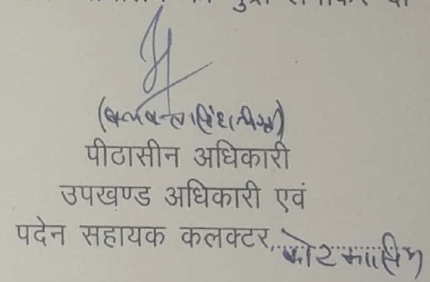 (बलवन्त सिंह लिग्री)
पीठासीन अधिकारी
उपखण्ड अधिकारी एवं
पदेन सहायक कलक्टर, कोटकासिम